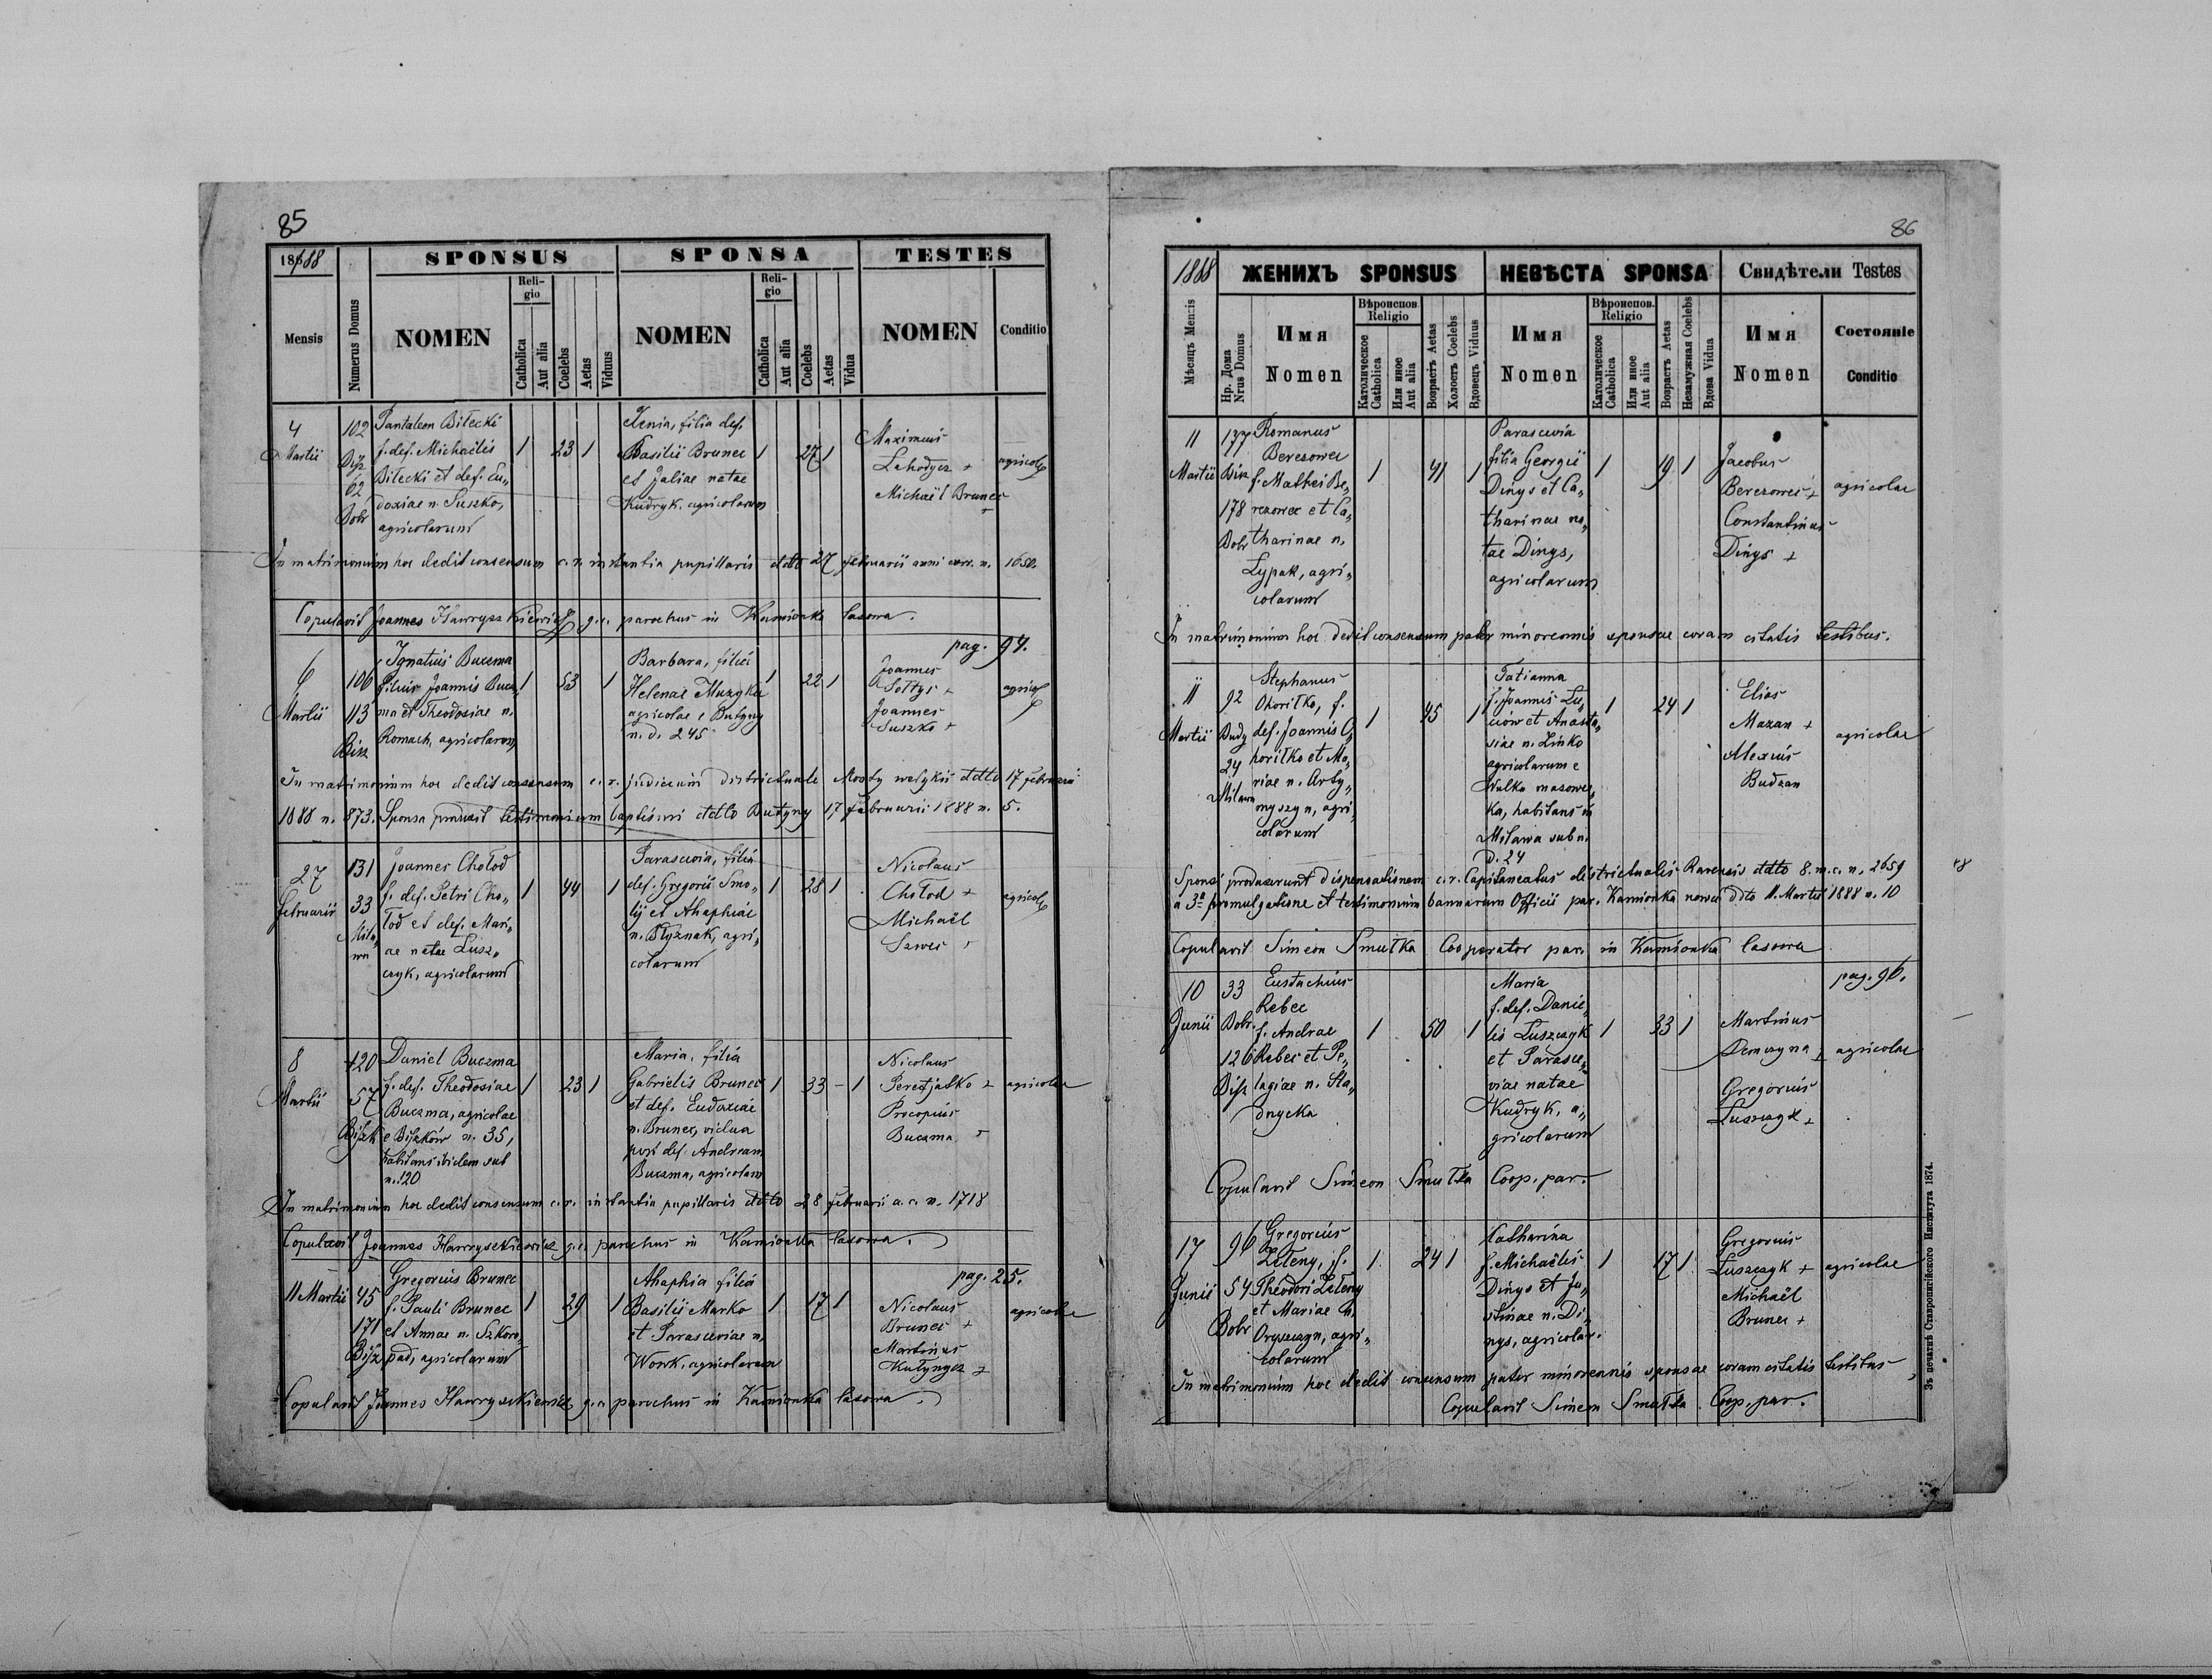 85
1888
SPONSUS
SPONSA
TESTES
Mensis
Numerus Domus
NOMEN
Religio
Catholica
Aut alia
Coelebs
Aetas
Viduus
NOMEN
Religio
Catholica
Aut alia
Coelebs
Aetas
Vidua
NOMEN
Conditio
4
Martii
102
Bisz
62
Bobr
Pantalem Bilecki
f. def. Michaëlis
Bilecki et def. Eu„
doxiae n. Suszko,
agricolarum
1
23
1
Xenia, filia def.
Basilii Brunec
et Juliae natae
Kudryk, agricolarum
1
27
1
Maximus
Lehodycz +
Michaël Brunec
+
agricolae
In matrimonium hoc dedit consensum c. r. instantia pupillaris ddto 27 februarii anni curr. n. 1650.
Copulavit Joannes Hawryszkiewicz g. r. parochus in Kamionka lasowa.
pag. 94.
6
Martii
106
113
Bisz
Ignatius Buczma
filius Joannis Bucz„
ma et Theodosiae n.
Romach, agricolarum
1
53
1
Barbara, filia
Helenae Muzyka
agricolae e Butyny
n. d. 245
1
22
1
Joannes
Soltys +
Joannes
Suszko +
agricolae
In matrimonium hoc dedit consensum c. r. judicium districtuale Mosty welykii ddto 17 februarii
1888 n. 873. Sponsa produxit testimonium baptismi ddto Butyny 17 februarii 1888 n. 5.
27
februarii
131
33
Mila„
wa
Joannes Chołod
f. def. Petri Cho„
łod et def. Mari„
ae natae Lusz„
czyk, agricolarum
1
44
1
Parascevia, filia
def. Gregorii Smo„
lij et Ahaphiae
n. Blyznak, agri„
colarum
1
28
1
Nicolaus
Chołod +
Michaël
Szwec +
agricolae
8
Martii
120
57
Biszk
Daniel Buczma
f. def. Theodosiae
Buczma, agricolae
e Biszków n. 35,
habitans ibidem sub
n. 120
1
23
1
Maria, filia
Gabrielis Brunec
et def. Eudoxiae
n. Brunec, vidua
post def. Andream
Buczma, agricolam
1
33
–
1
Nicolaus
Peretjatko +
Procopius
Buczma +
agricolae
In matrimonium hoc dedit consensum c. r. instantia pupillaris ddto 28 februarii a. c. n. 1718
Copulavit Joannes Hawryszkiewicz g. r. parochus in Kamionka lasowa.
pag. 25.
11 Martii
45
171
Bisz
Gregorius Brunec
f. Pauli Brunec
et Annae n. Szkoro„
pad, agricolarum
1
29
1
Ahaphia filia
Basilii Marko
et Parasceviae n.
Wowk, agricolarum
1
17
1
Nicolaus
Brunec +
Martinus
Kutynycz +
agricolae
Copulavit Joannes Hawryszkiewicz g. r. parochus in Kamionka lasowa.
86
1888
ЖЕНИХЪ SPONSUS
НЕВѢСТА SPONSA
Свидѣтели Testes
Мѣсяцъ Mensis
Нр. Дома
Nrus Domus
Имя
Nomen
Вѣроиспов.
Religio
Католическое
Catholica
Или иное
Aut alia
Возрастъ Aetas
Холостъ Coelebs
Вдовецъ Viduus
Имя
Nomen
Вѣроиспов.
Religio
Католическое
Catholica
Или иное
Aut alia
Возрастъ Aetas
Незамужная Coelebs
Вдова Vidua
Имя
Nomen
Состояніе
Conditio
11
Martii
177
Bisz
178
Bobr
Romanus
Berezowec
f. Matthei Be„
rezowec et Ca„
tharinae n.
Lypak, agri„
colarum
1
41
1
Parascevia
filia Georgii
Dinys et Ca„
tharinae na„
tae Dinys,
agricolarum
1
19
1
Jacobus
Berezowec +
Constantinus
Dinys +
agricolae
In matrimonium hoc dedit consensum pater minorennis sponsae coram citatis testibus.
11
Martii
92
Budy
24
Milawa
Stephanus
Ohoriłko, f.
def. Joannis O„
horiłko et Ma„
riae n. Arty„
myszyn, agri„
colarum
1
45
1
Tatianna
f. Joannis Lu„
ciów et Anasta„
siae n. Linko
agricolarum e
Wulka mazowec„
ka, habitans in
Milawa sub n.
d. 24
1
24
1
Elias
Mazan +
Alexius
Budzan
agricolae
Sponsi produxerunt dispensationem c. r. Capitaneatus districtualis Ravensis ddto 8. m. c. n. 2659
a 3a promulgatione et testimonium bannorum Officii par. Kamionka nowa ddto 11. Martii 1888 n. 10
Copulavit Simeon Smułka Cooperator par. in Kamionka lasowa
pag. 96.
10
Junii
33
Bobr.
126
Bisz
Eustachius
Rebec
f. Andrae
Rebec et Pe„
lagiae n. Sta„
dnycka
1
50
1
Maria
f. def. Danie„
lis Łuszczyk
et Parasce„
viae natae
Kudryk, a„
gricolarum
1
33
1
Martinus
Demczyna +
Gregorius
Łuszczyk +
agricolae
Copulavit Simeon Smułka Coop. par.
17
Junii
96
54
Bobr
Gregorius
Zeleny, f.
Theodori Zeleny
et Mariae n.
Oryszczyn, agri„
colarum
1
24
1
Catharina
f. Michaëlis
Dinys et Ju„
stinae n. Di„
nys, agricolar.
1
17
1
Gregorius
Łuszczyk +
Michaël
Brunec +
agricolae
In matrimonium hoc dedit consensum pater minorennis sponsae coram citatis testibus
Copulavit Simeon Smułka Coop. par.
Зъ печатнѣ Ставропигійского Института 1874.